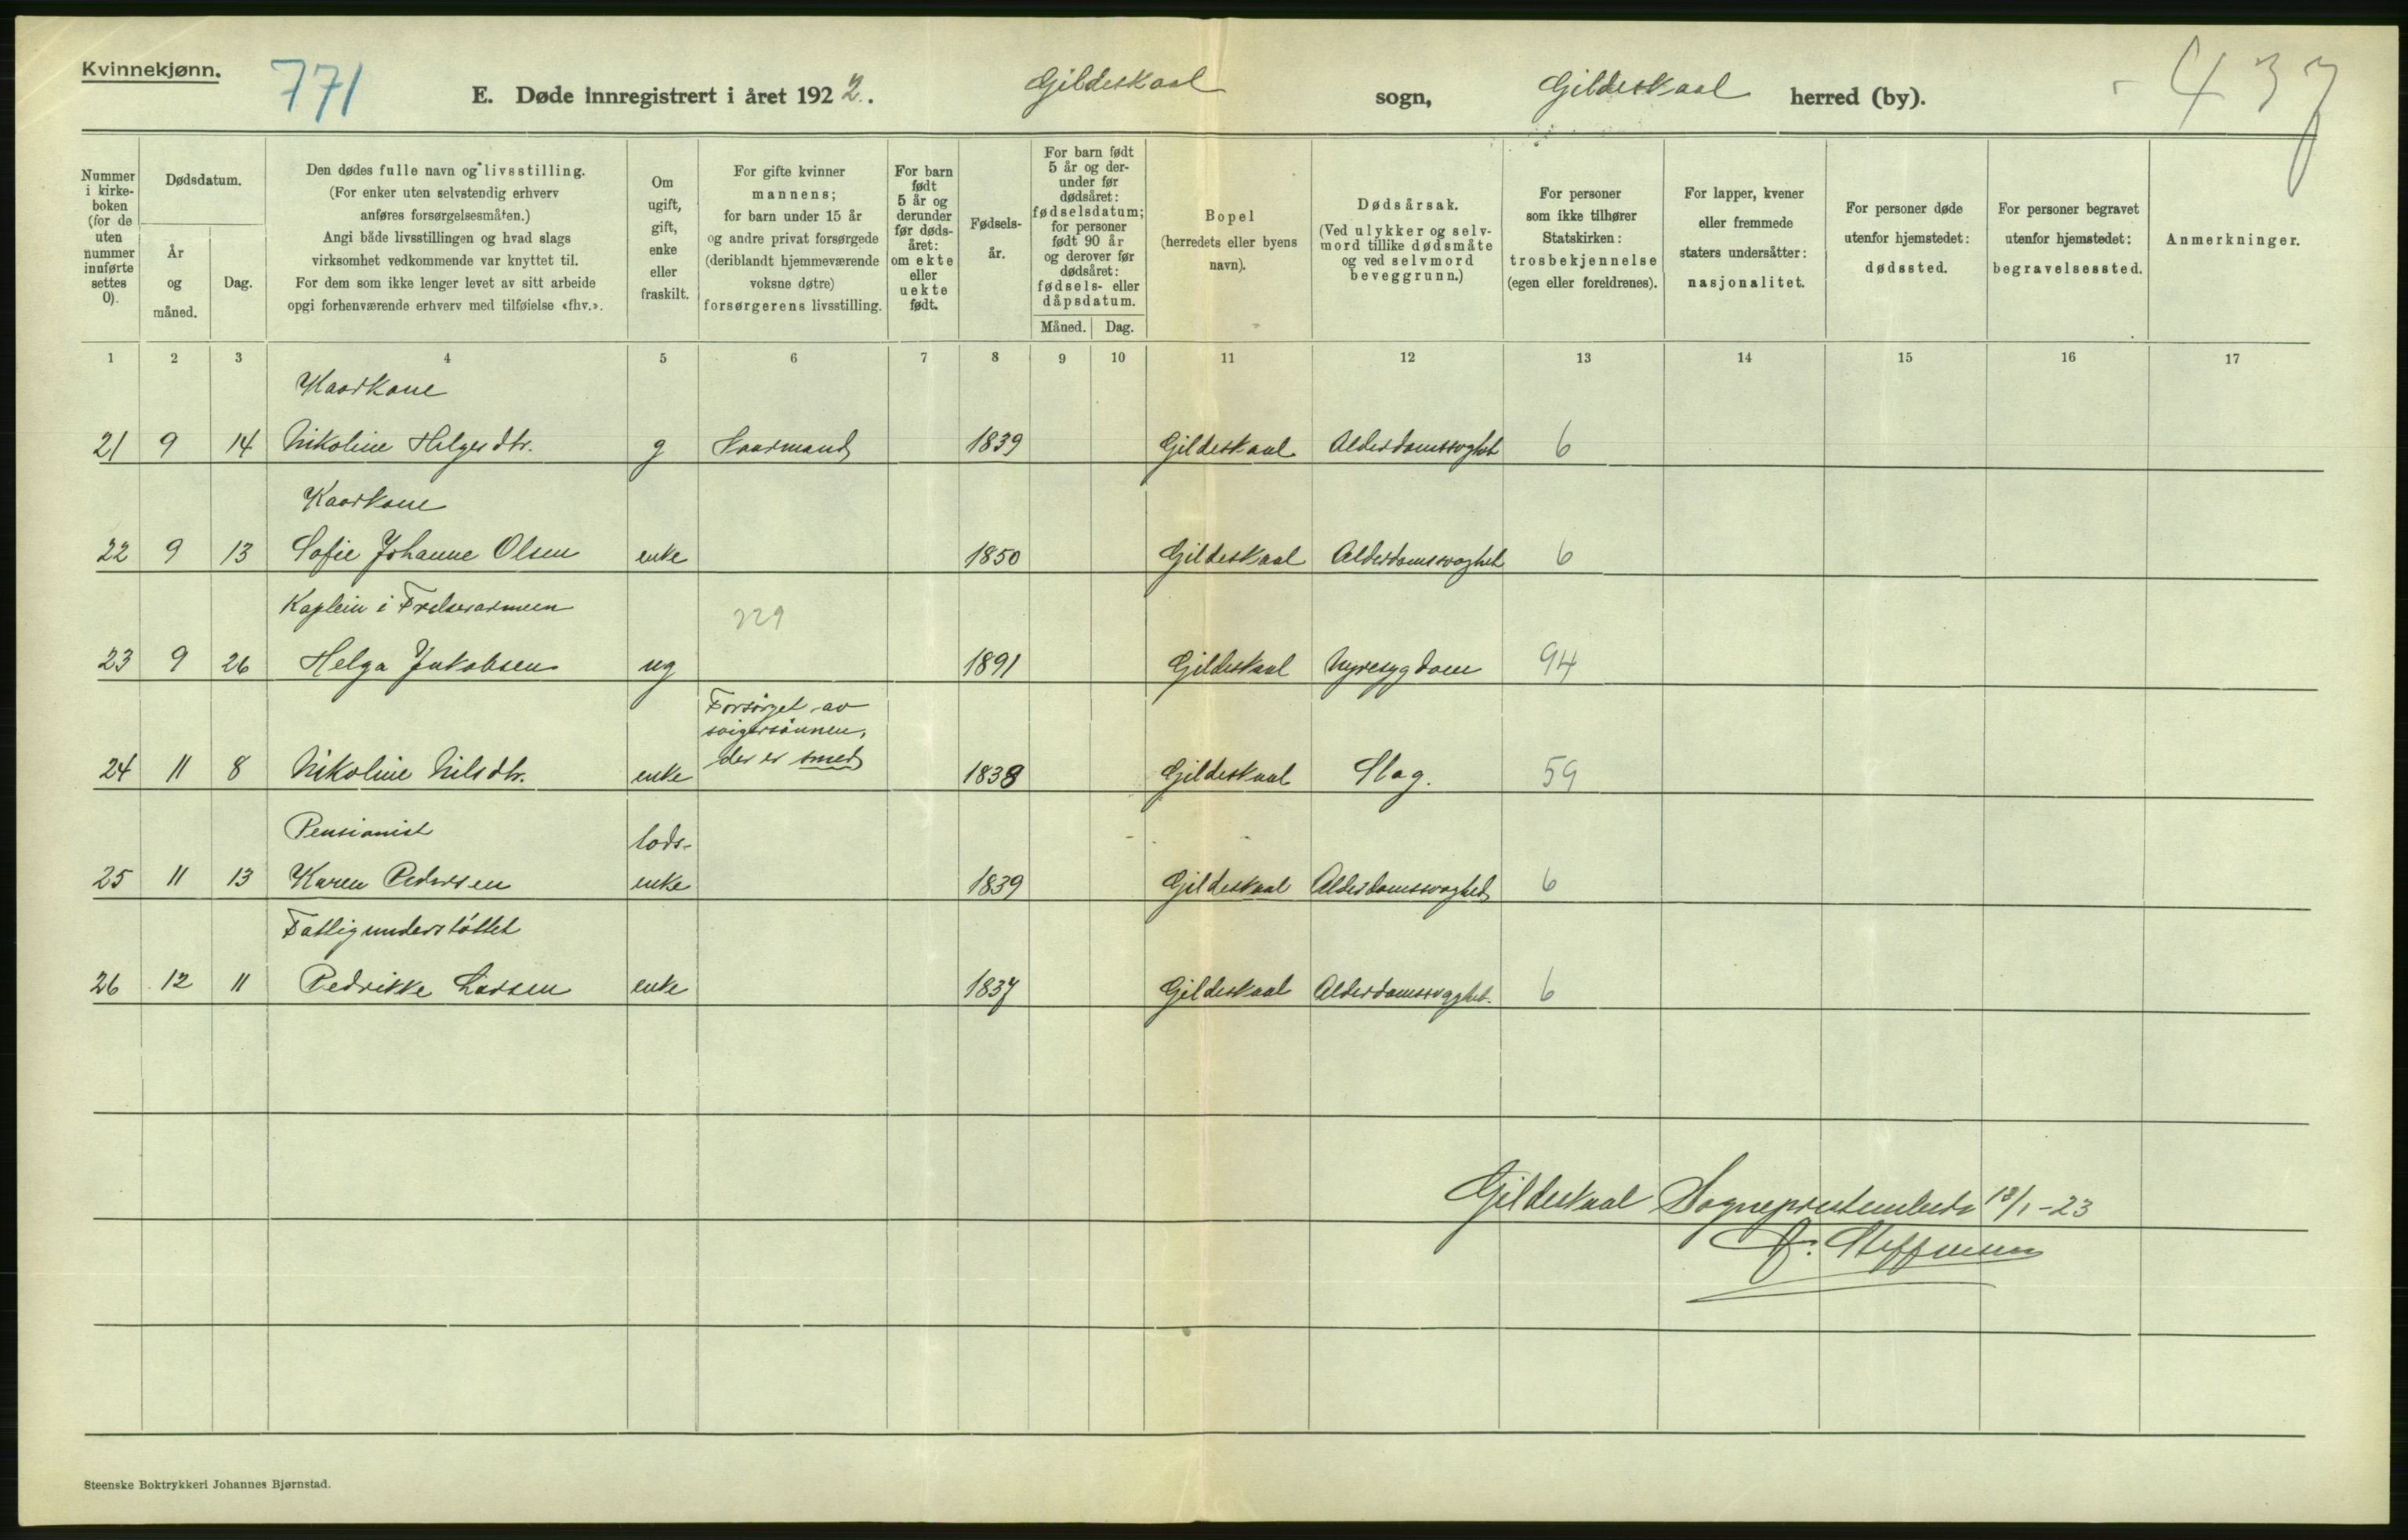 Kvinnekjønn.
771
E. Døde innregistrert i året 1922.
Gildeskaal sogn,
Gildeskaal herred (by).
437
Nummer i kirkeboken (for de uten nummer innførte settes 0).
Dødsdatum.
År og måned.
Dag.
Den dødes fulle navn og livsstilling.
(For enker uten selvstendig erhverv
anføres forsørgelsesmåten.)
Angi både livsstillingen og hvad slags
virksomhet vedkommende var knyttet til.
For dem som ikke lenger levet av sitt arbeide
opgi forhenværende erhverv med tilføielse «fhv.».
Om
ugift,
gift,
enke
eller
fraskilt.
For gifte kvinner
mannens;
for barn under 15 år
og andre privat forsørgede
(deriblandt hjemmeværende
voksne døtre)
forsørgerens livsstilling.
For barn
født
5 år og
derunder
før døds-
året:
om ekte
eller
uekte
født.
Fødsels-
år.
For barn født
5 år og der-
under før
dødsåret:
fødselsdatum;
for personer
født 90 år
og derover før
dødsåret:
fødsels- eller
dåpsdatum.
Måned. Dag.
Bopel
(herredets eller byens
navn).
Dødsårsak.
(Ved ulykker og selv-
mord tillike dødsmåte
og ved selvmord
beveggrunn.)
For personer
som ikke tilhører
Statskirken:
trosbekjennelse
(egen eller foreldrenes).
For lapper, kvener
eller fremmede
staters undersåtter:
nasjonalitet.
For personer døde
utenfor hjemstedet:
dødssted.
For personer begravet
utenfor hjemstedet:
begravelsessted.
Anmerkninger.
1 2 3 4 5 6 7 8 9 10 11 12 13 14 15 16 17
Kaarkone
21 9 14 Nikoline Helgesdtr. g Kaarmand 1839 Gildeskaal Alderdomssvaghet 6
Kaarkone
22 9 13 Sofie Johanne Olsen enke 1850 Gildeskaal Alderdomssvaghet 6
Kaptein i Frelsesarmeen 229
23 9 26 Helga Jakobsen ug 1891 Gildeskaal Nyresygdom 94
Forsørget av
svigersønnen,
der er smed
24 11 8 Nikoline Nilsdtr. enke 1838 Gildeskaal Slag. 59
Pensionist lods-
25 11 13 Karen Pedersen enke 1839 Gildeskaal Alderdomssvaghed 6
Fattigunderstøttet
26 12 11 Pedrikke Larsen enke 1837 Gildeskaal Alderdomssvaghet. 6
Gildeskaal Sogneprestembede 18/1-23
Steffensen
Steenske Boktrykkeri Johannes Bjørnstad.